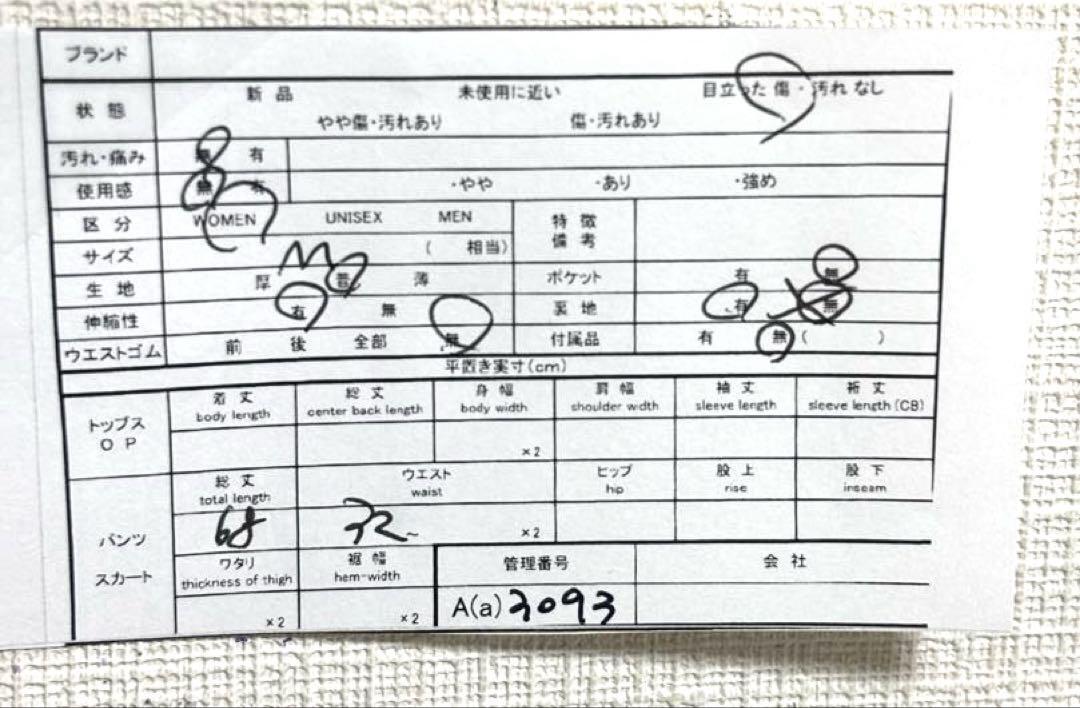 ブランド
状態 新品 未使用に近い 目立った 傷・汚れ なし
やや傷・汚れあり 傷・汚れあり
汚れ・痛み 無 有
使用感 無 有 ・やや ・あり ・強め
区分 WOMEN UNISEX MEN 特徴 備考
サイズ M ( 相当)
生地 厚 普 薄 ポケット 有 無
伸縮性 有 無 裏地 有 無
ウエストゴム 前 後 全部 無 付属品 有 無 ( )
平置き実寸(cm)
トップス O P 着丈 総丈 身幅 肩幅 袖丈 裄丈
body length center back length body width shoulder width sleeve length sleeve length(CB)
×2
パンツ スカート 総丈 ウエスト ヒップ 股上 股下
total length waist hip rise inseam
68 32 ×2
ワタリ 裾幅 管理番号 会社
thickness of thigh hem-width
×2 ×2 A(a) 3093